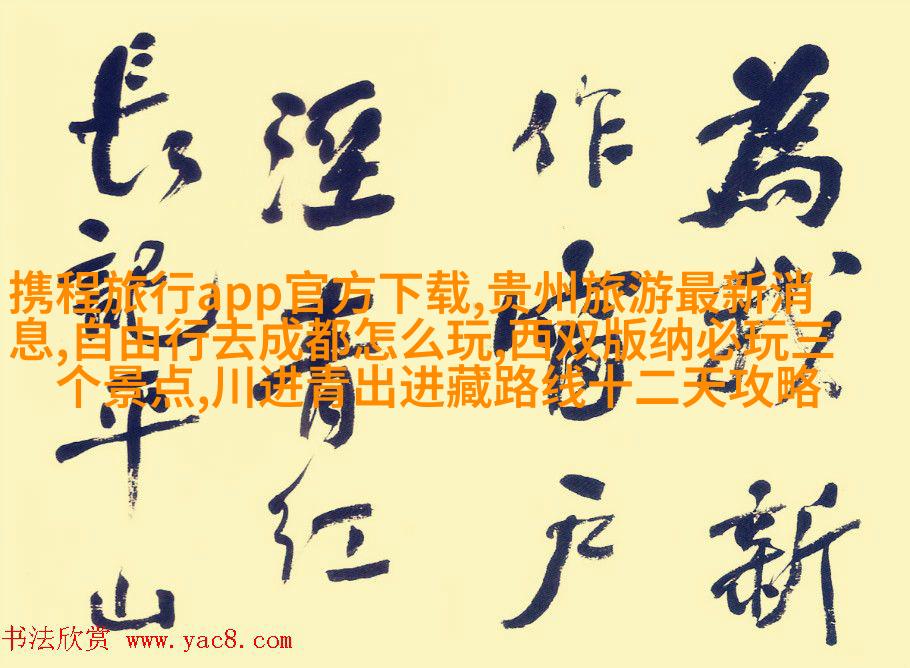 為我新
作窗户
溼青红
長記平山
携程旅行app官方下载,贵州旅游最新消
息,自由行去成都怎么玩,西双版纳必玩三
个景点,川进青出进藏路线十二天攻略
书法欣赏 www.yac8.com